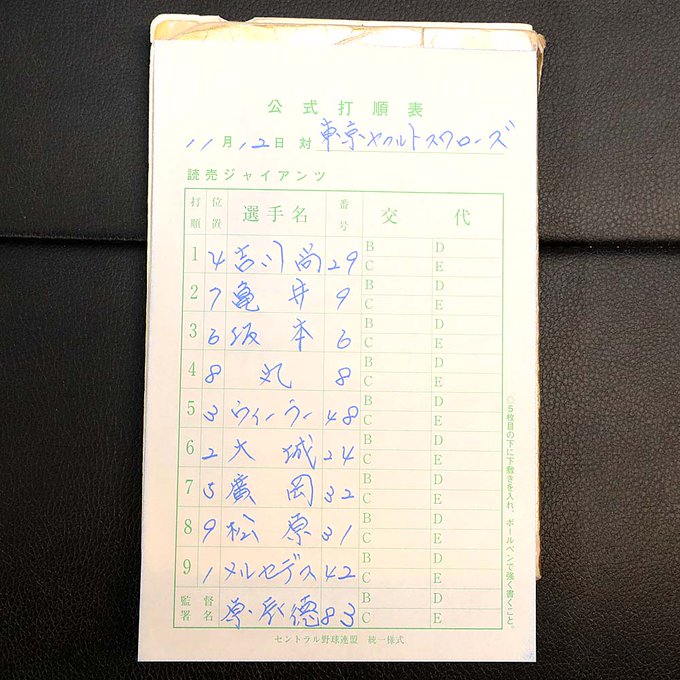 公式打順表
11月12日 対 東京ヤクルトスワローズ
読売ジャイアンツ
打順 位置 選手名 番号 交代
1 4 吉川尚 29 B D C E
2 7 亀井 9 B D C E
3 6 坂本 6 B D C E
4 8 丸 8 B D C E
5 3 ウィーラー 48 B D C E
6 2 大城 24 B D C E
7 5 廣岡 32 B D C E
8 9 松原 31 B D C E
9 1 メルセデス 42 B D C E
監督署名 原辰徳 83 B D C E
セントラル野球連盟 統一様式
◎5枚目の下に下敷きを入れ、ボールペンで強く書くこと。